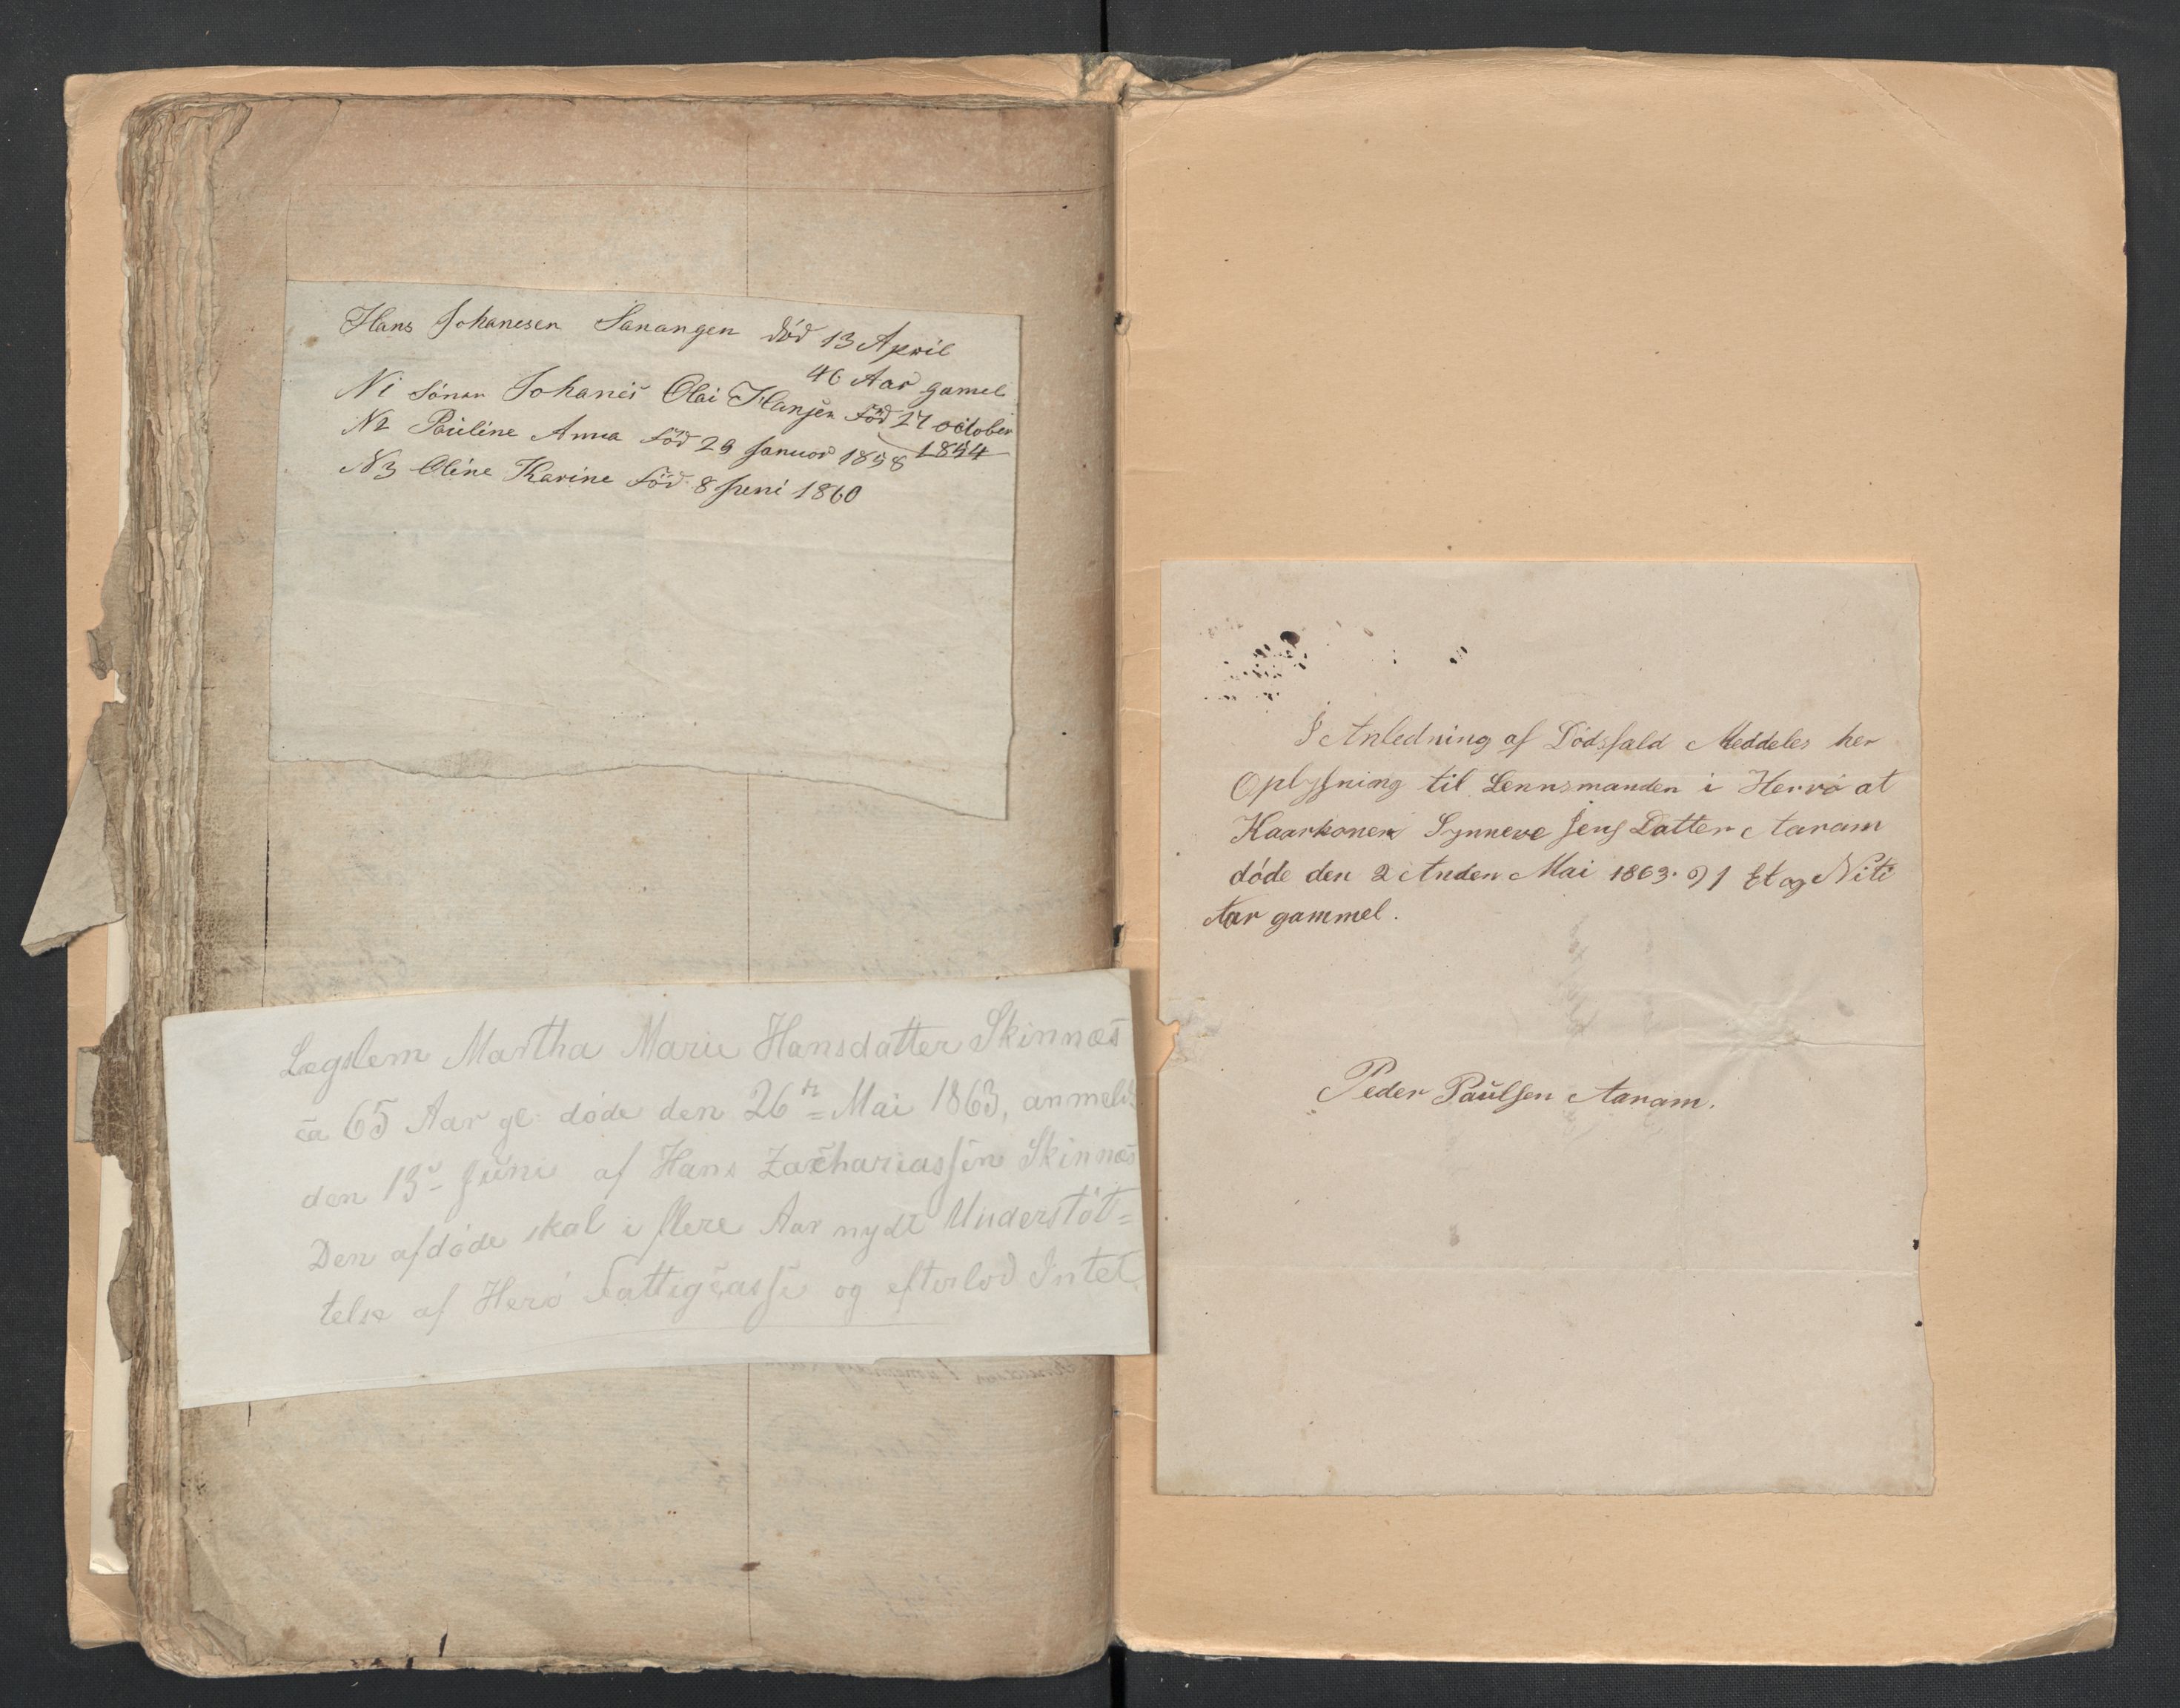 Hans Johanesen Sanangen död 13 April
46 Aar gamel
N1 Sönen Johanes Olai Hansen Föd 27 october
1854
N2 Pauline Anna Föd 29 Januar 1858
N3 Oline Karine Föd 8 Juni 1860
Lægslem Martha Marie Hansdatter Skinnæs
ca 65 Aar gl. døde den 26de Mai 1863, anmeldt
den 13de Juni af Hans Zachariassen Skinnæs
Den afdøde skal i flere Aar nydt Understöt=
telse af Herø Fattigcasse og efterlod Intet.
I Anledning af Dødsfald Meddeles her
Oplysning til Lennsmanden i Herrø at
Kaarkonen Synneve Jens Datter Aaram
døde den 2 Anden Mai 1863. 91 Et og Niti
Aar gammel.
Peder Paulsen Aaram.